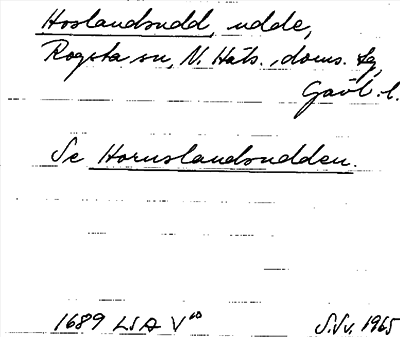 Hoslandsudd, udde,
Rogsta sn, N. Häls., doms. tg,
Gävl. l.
Se Hornslandsudden.
1689 LSA V¹⁰ S.Sv. 1965